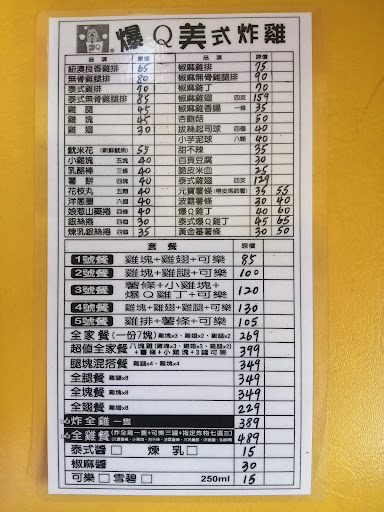 爆Q美式炸雞
品項 原價 品項 原價
紐澳良香雞排 65 椒麻雞排 75
無骨香雞腿排 80 椒麻無骨雞腿排 90
泰式雞排 70 椒麻雞丁 70
泰式無骨雞腿排 85 椒麻雞翅 四支 159
雞腿 45 椒麻雞香腸 一條 35
雞塊 45 杏鮑菇 50
雞翅 30 拔絲起司球 四個 40
小芋泥球 八顆 40
魷米花(新鮮魷魚) 55 甜不辣 35
小雞塊 五塊 40 百頁豆腐 30
乳酪棒 三條 40 脆皮米血 25
薯餅 四塊 40 泰式雞翅 四支 129
花枝丸 五大丸 40 元寶薯條(帶皮馬鈴薯) 35 55
洋蔥圈 六個 40 波霸薯條 30 40
娘惹山藥捲 四條 40 爆Q雞丁 40 60
銀絲捲 四條 40 泰式爆Q雞丁 45 65
煉乳銀絲捲 四條 35 黃金蕃薯條 30 50
套餐 原價
1號餐 雞塊+雞翅+可樂 85
2號餐 雞塊+雞腿+可樂 100
3號餐 薯條+小雞塊+爆Q雞丁+可樂 120
4號餐 雞塊+雞翅+雞腿+可樂 130
5號餐 雞排+薯條+可樂 105
全家餐(一份7塊) 雞塊x3、雞翅x2、雞腿x2 269
超值全家餐 八塊雞(雞塊x3、雞翅x3、雞腿x2)
+薯條+小雞塊+3罐可樂 399
腿塊混搭餐 雞腿x4、雞塊x4 349
全腿餐 雞腿x8 349
全塊餐 雞塊x8 349
全翅餐 雞翅x8 229
炸全雞 一隻 389
全雞餐 (炸全雞一隻+可樂三罐+指定炸物七選三) 489
泰式醬 煉乳 15
椒麻醬 30
可樂 雪碧 250ml 15